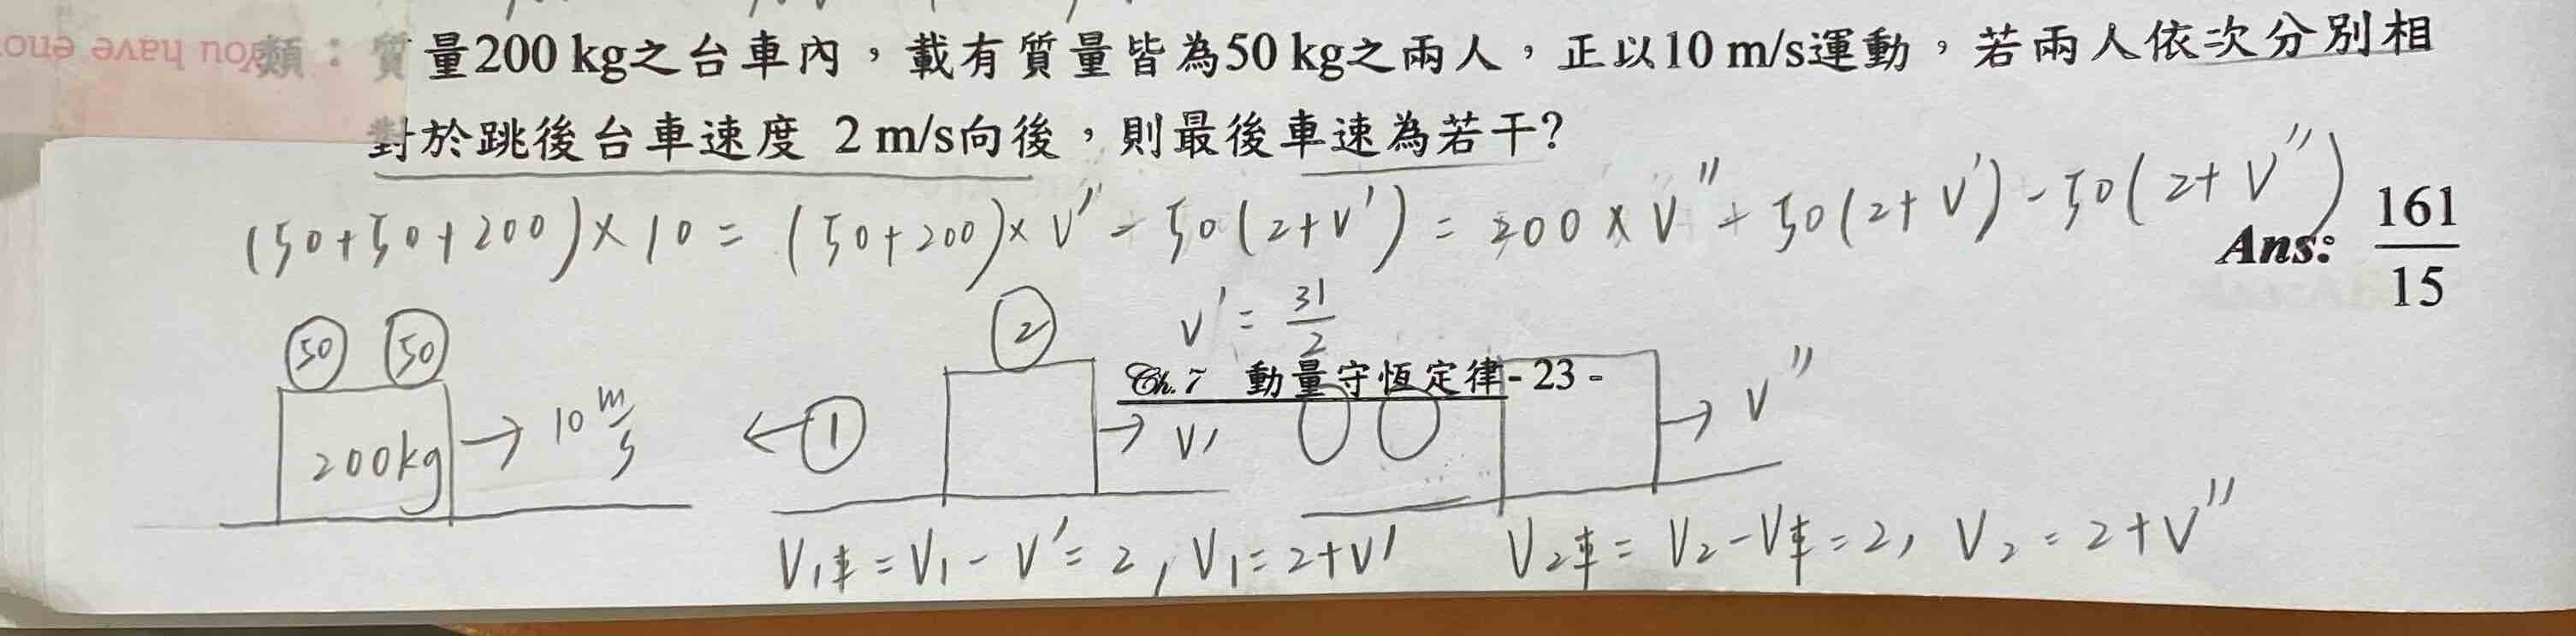 類：質量200 kg之台車內，載有質量皆為50 kg之兩人，正以10 m/s運動，若兩人依次分別相
對於跳後台車速度 2 m/s向後，則最後車速為若干?
(50+50+200)×10 = (50+200)×V' - 50(2+V') = 200×V'' - 50(2+V') - 50(2+V'')
Ans: 161/15
V' = 31/2
50 50
200kg → 10 m/s
← ①
② → V'
→ V''
Ch.7 動量守恆定律- 23 -
V₁車 = V₁ - V' = 2, V₁ = 2+V'
V₂車 = V₂ - V車 = 2, V₂ = 2+V''
you have